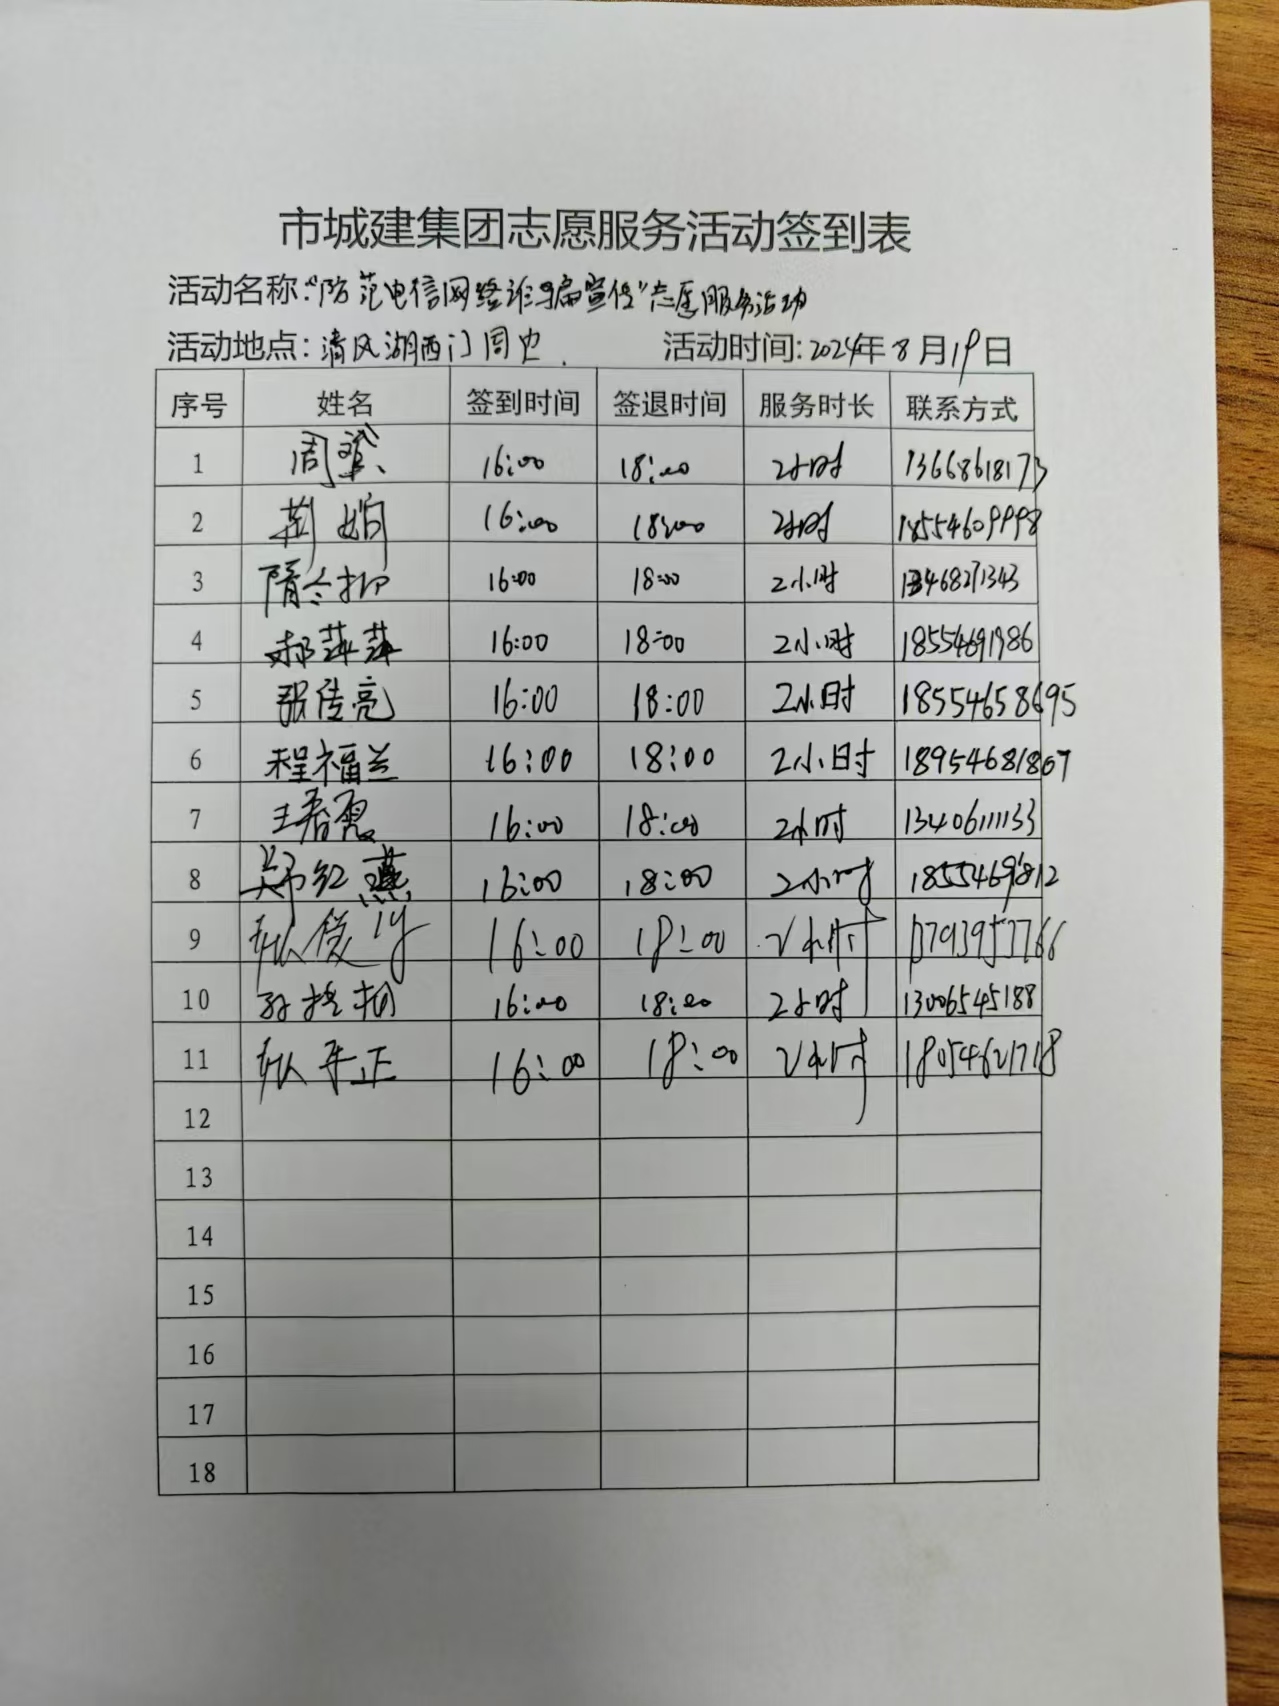 市城建集团志愿服务活动签到表
活动名称:"防范电信网络诈骗宣传"志愿服务活动
活动地点:清风湖西门周边. 活动时间:2024年8月19日
序号 姓名 签到时间 签退时间 服务时长 联系方式
1 周 16:00 18:00 2小时 13668618173
2 荆娟 16:00 18:00 2小时 18554609998
3 隋 16:00 18:00 2小时 13468271343
4 郝萍萍 16:00 18:00 2小时 18554691986
5 张传亮 16:00 18:00 2小时 18554658695
6 程福兰 16:00 18:00 2小时 18954681807
7 王春霞 16:00 18:00 2小时 13406111133
8 郑红燕 16:00 18:00 2小时 18554691812
9 16:00 18:00 2小时
10 16:00 18:00 2小时 13006545188
11 16:00 18:00 2小时 18054621718
12
13
14
15
16
17
18